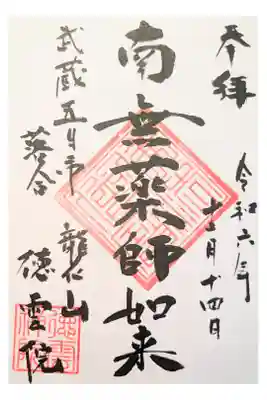 奉拝
令和六年
十二月十四日
南無薬師如来
武蔵五日市
落合
龍化山
徳雲院